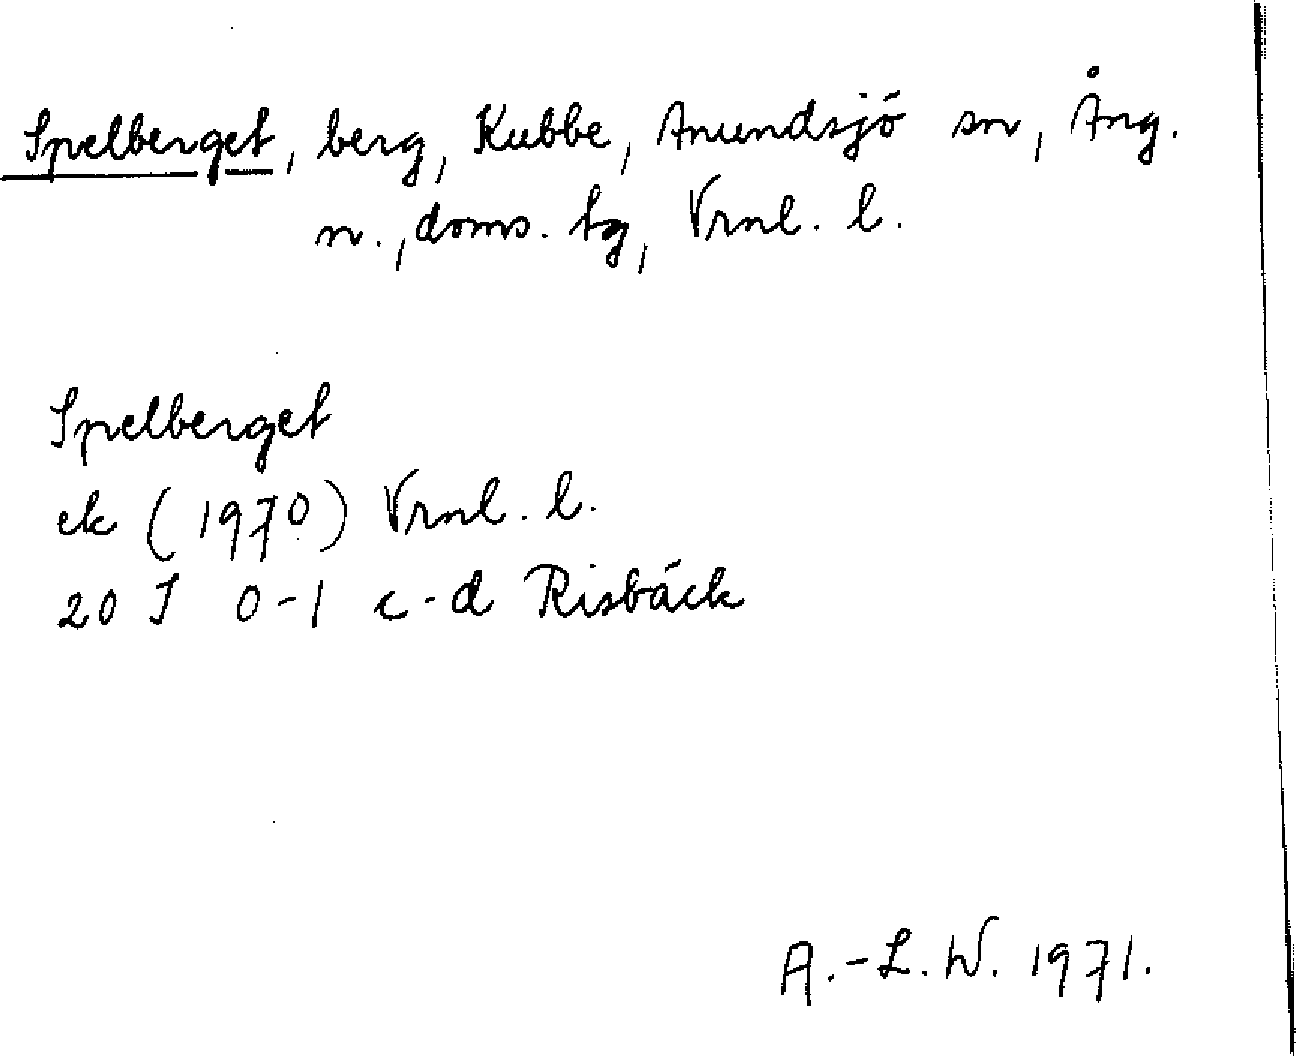 Spelberget, berg, Kubbe, Anundsjö sn, Ång.
n., doms. tg, Vrnl. l.
Spelberget
ek (1970) Vrnl. l.
20 I 0-1 c-d Risbäck
A.-L. W. 1971.